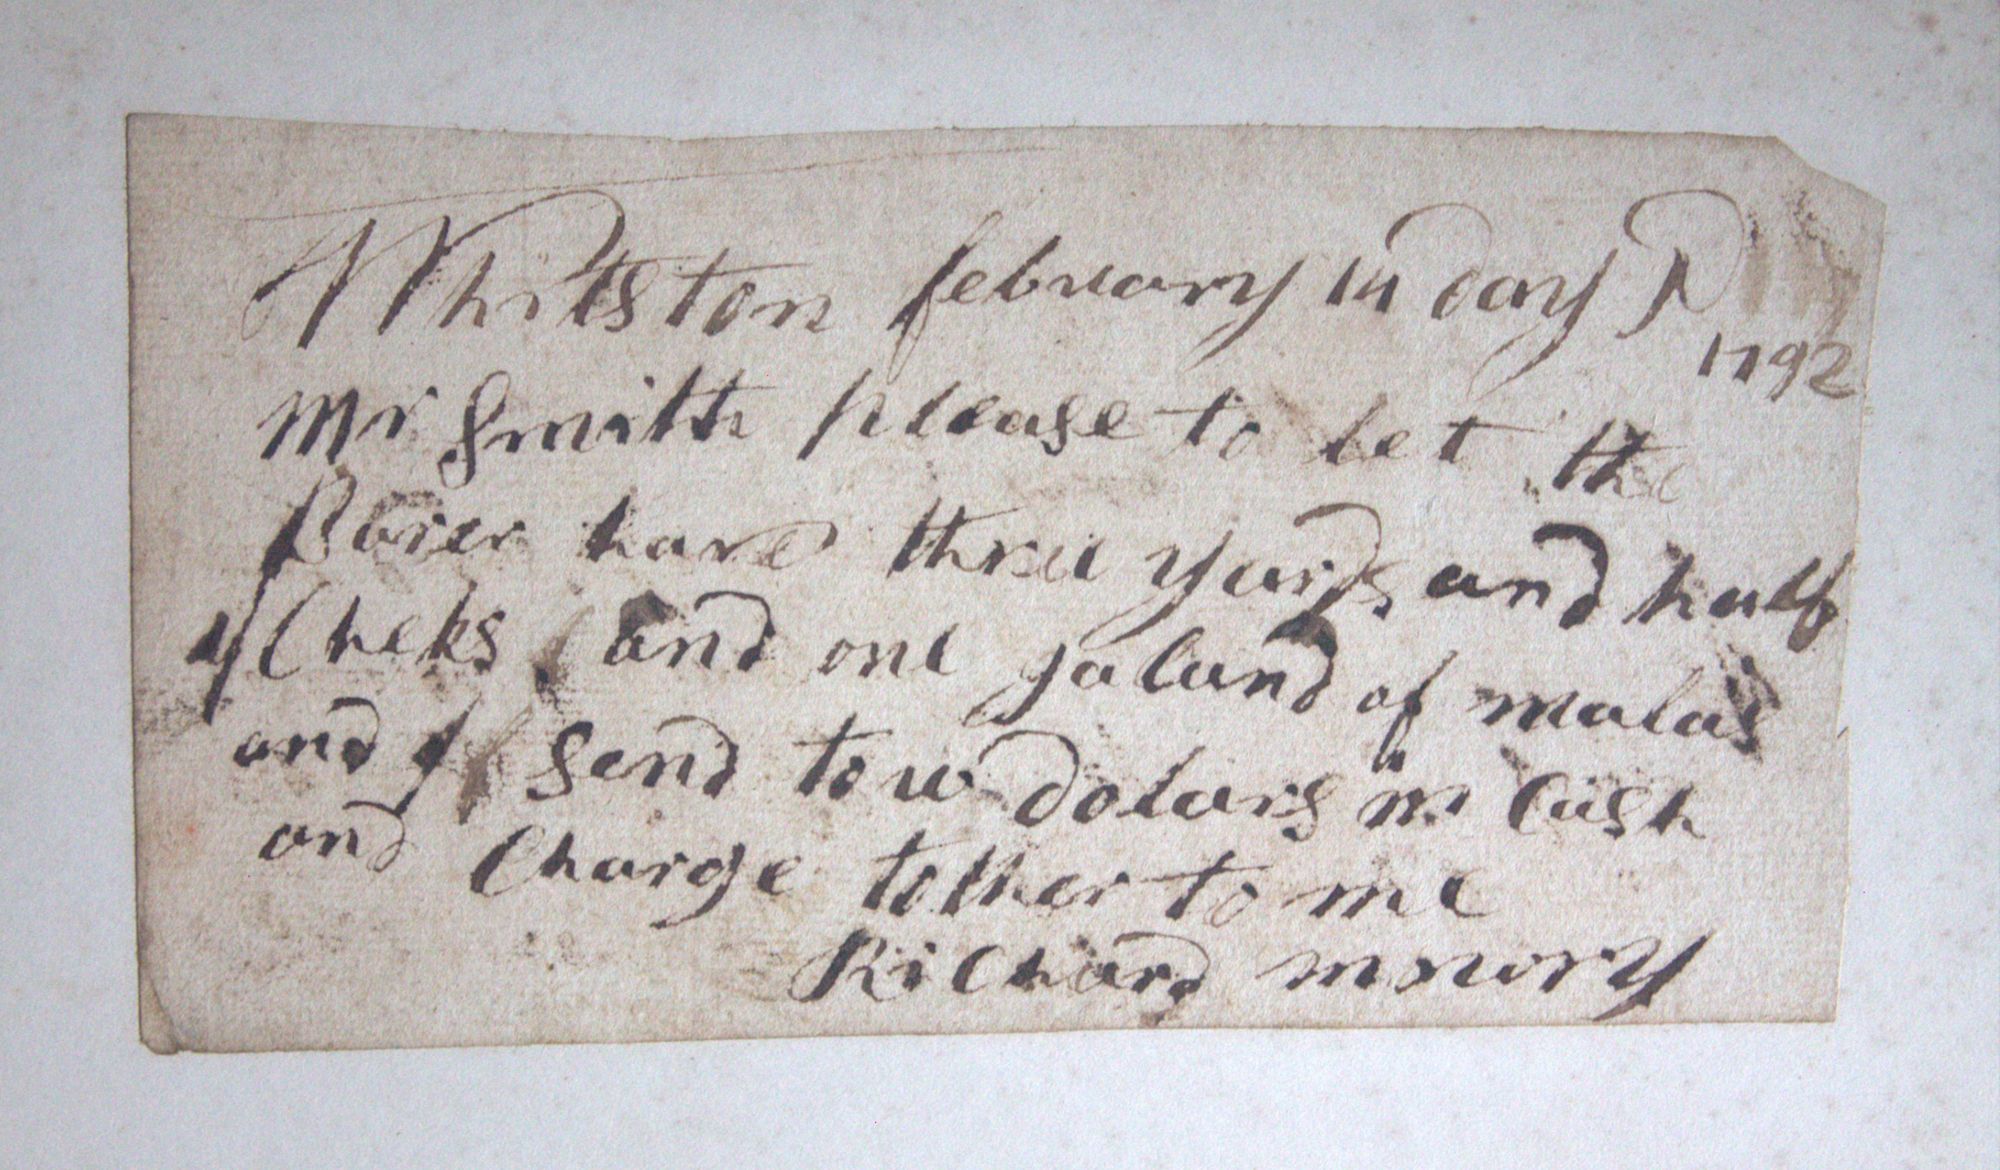 Whitston february 14 Day
1792
Mr Smith please to let the
Barer have three yards and half
of Cheks and one galand of malas
and send tow dolars in Cash
and Charge tother to me
Richard mowry